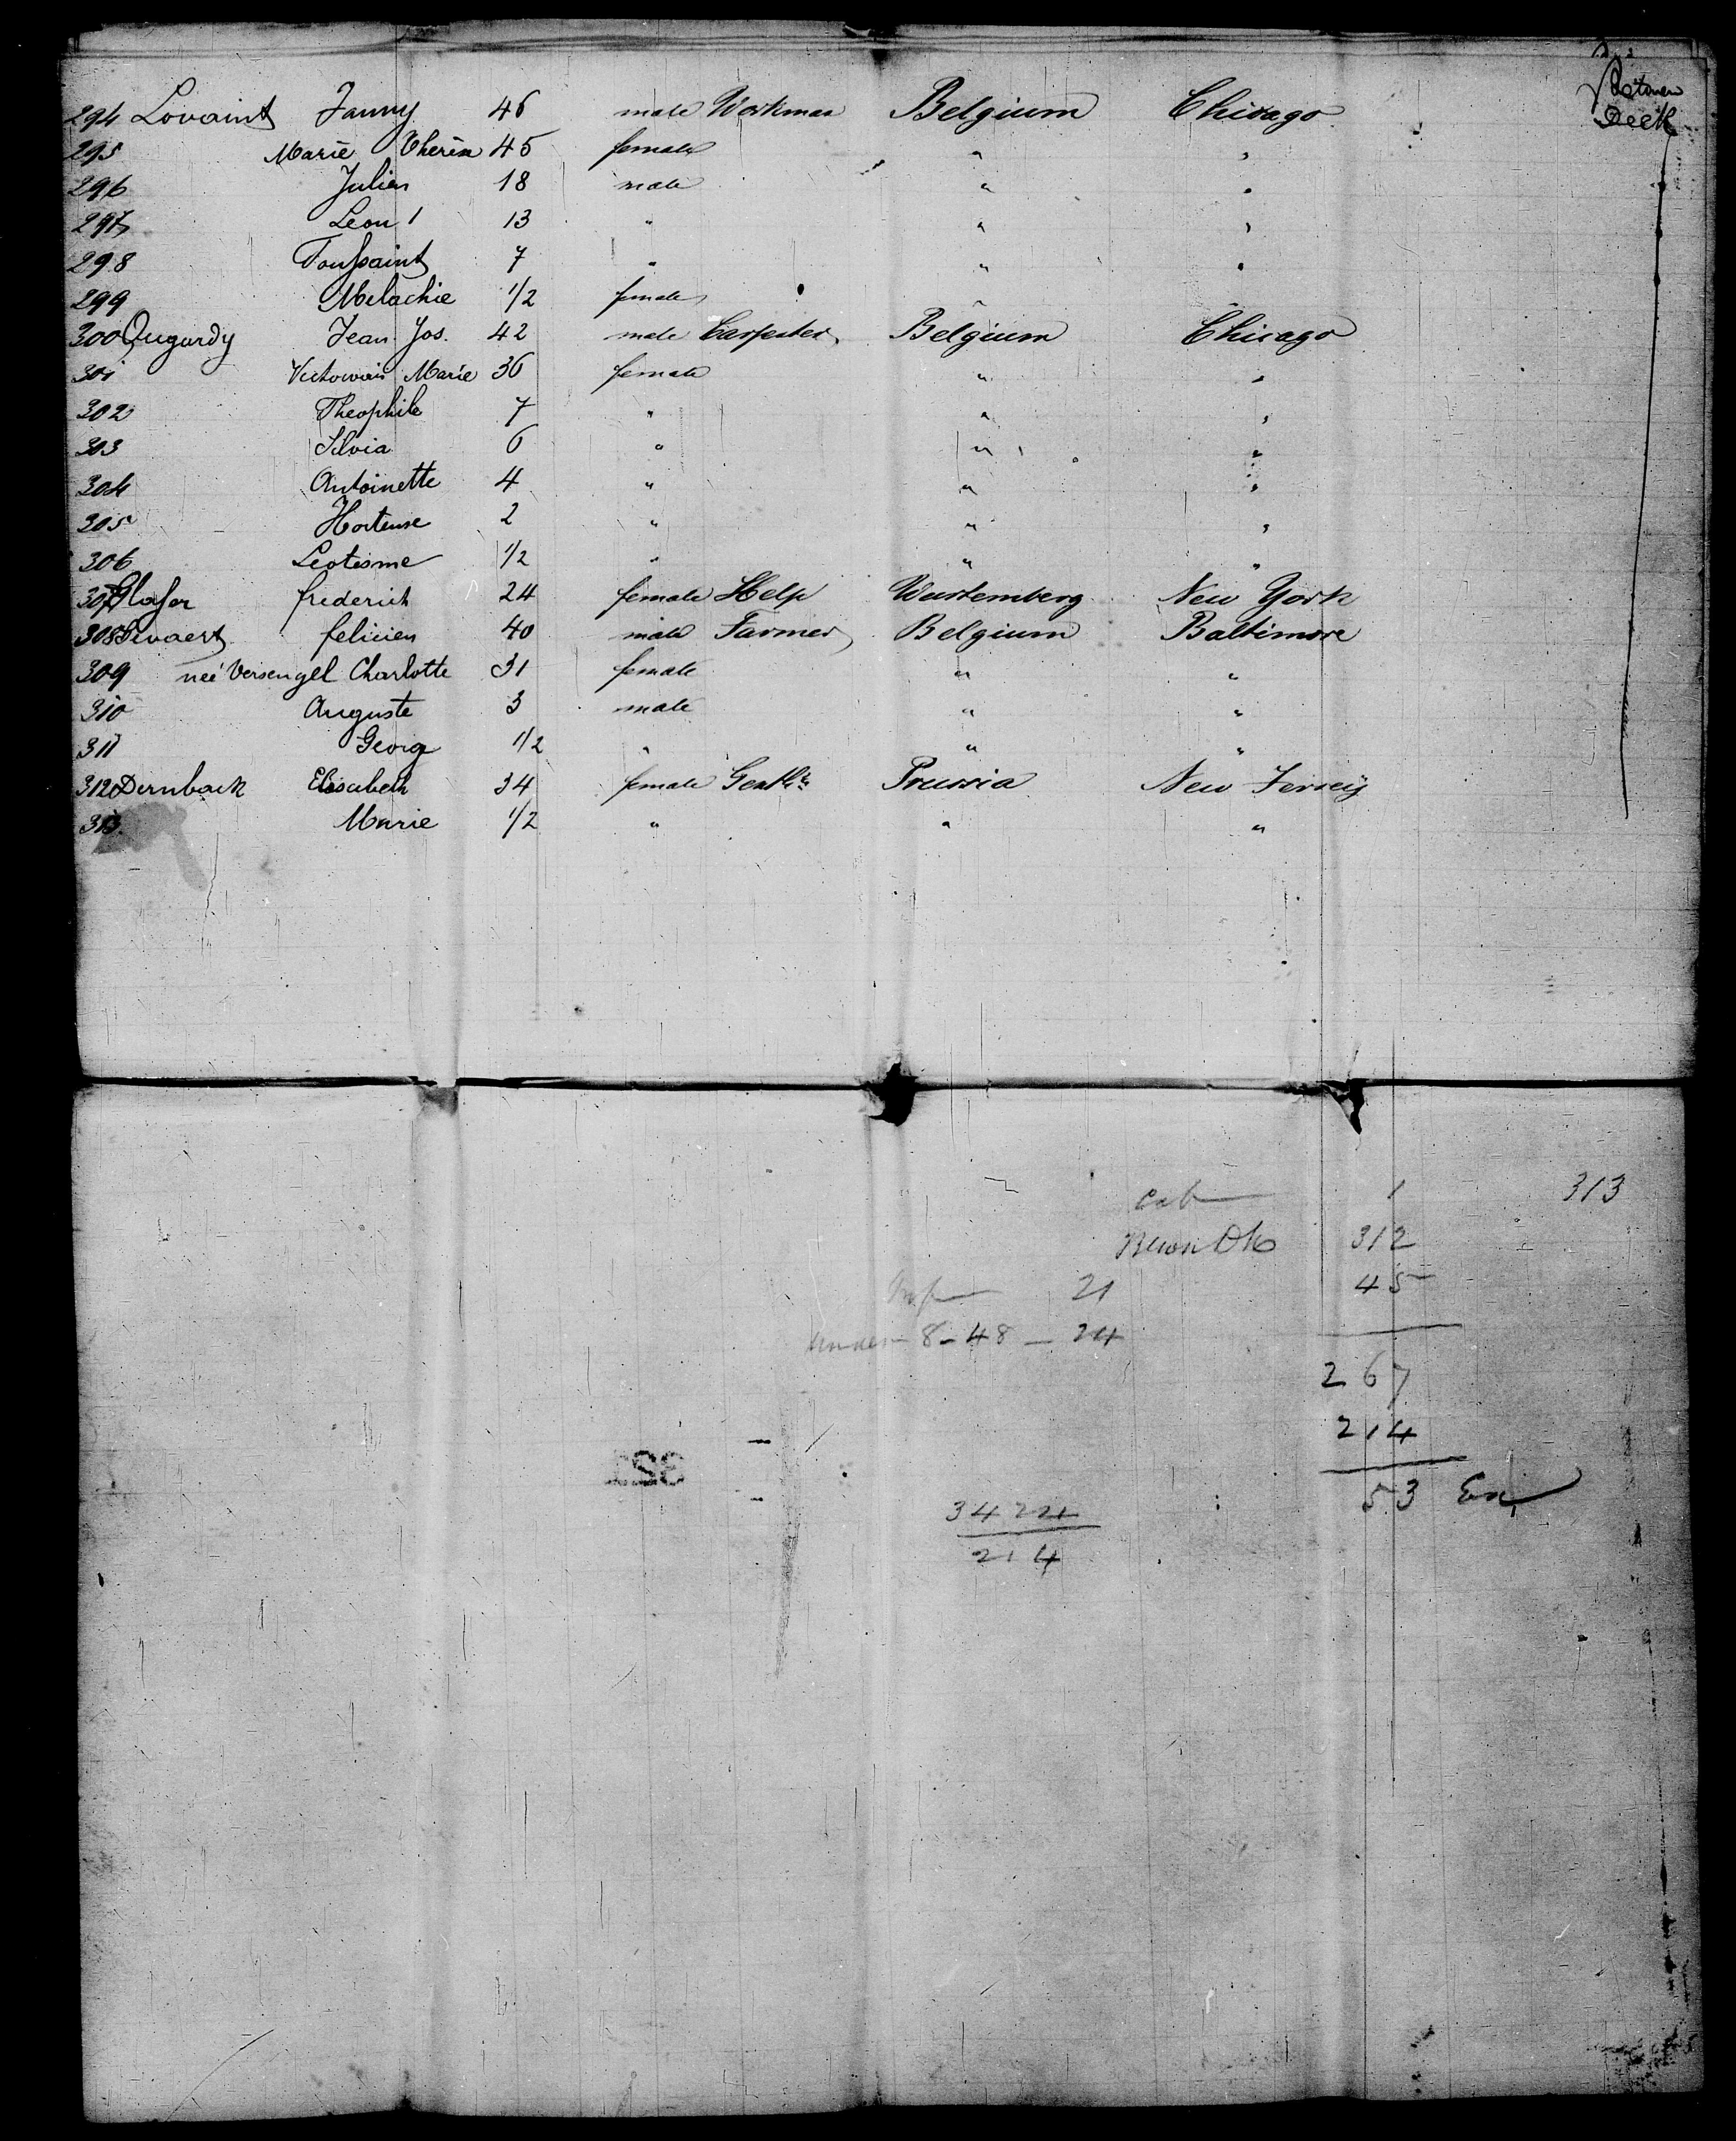 294 Lovaint Fanny 46 male Workman Belgium Chicago Between Deck
295 Marie Therèse 45 female " "
296 Julien 18 male " "
297 Leon 1 13 " " "
298 Toussaint 7 " " "
299 Melachie 1/2 female " "
300 Qugardy Jean Jos. 42 male Carpenter Belgium Chicago
301 Marie 36 female " "
302 Theophile 7 " " "
303 Silvia 6 " " "
304 Antoinette 4 " " "
305 Hortense 2 " " "
306 Leotisme 1/2 " " "
307 Glaser frederich 24 female Help Wurtemberg New York
308 felicien 40 male Farmer Belgium Baltimore
309 neé Versengel Charlotte 31 female " "
310 Auguste 3 male " "
311 Georg 1/2 " " "
312 Dernback Elisabeth 34 female Prussia New Jersey
313 Marie 1/2 " " "
cab 1 313
312
Inf 21 45
under 8 - 48 - 24
267
214
53 Ex
321
214